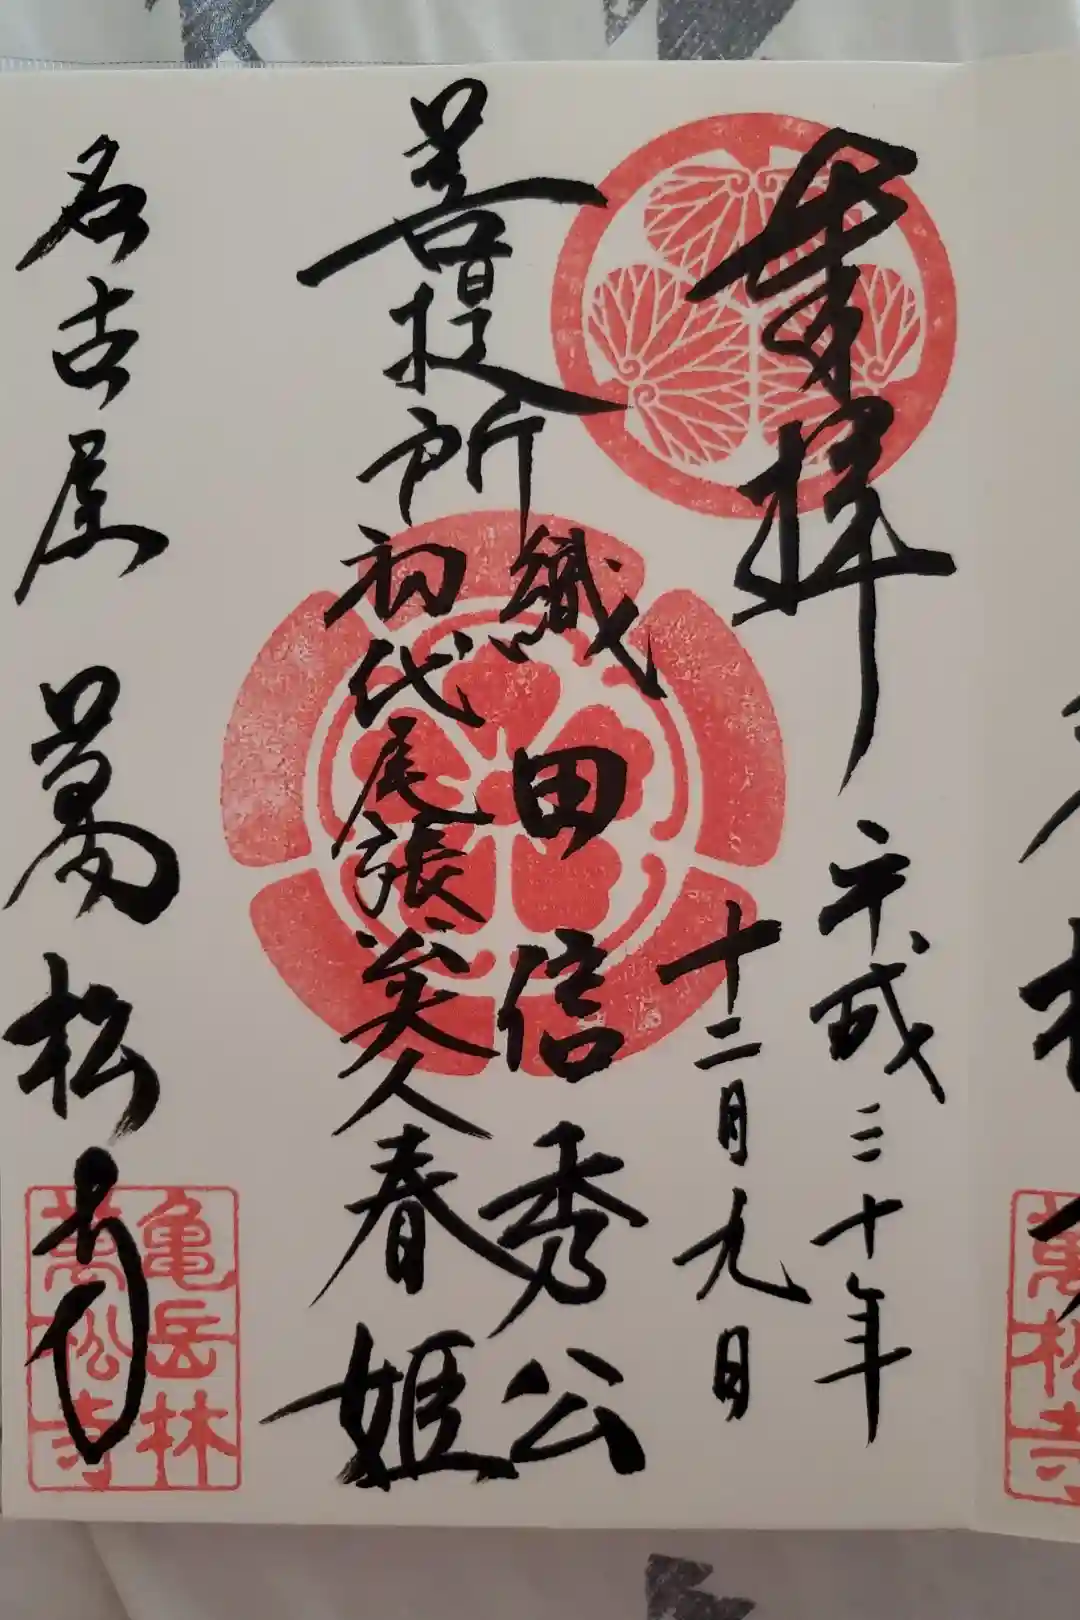 奉拝
平成三十年
十二月九日
菩提所
織田信秀公
初代尾張
夫人春姫
名古屋 萬松寺
亀岳林
萬松寺
萬松寺